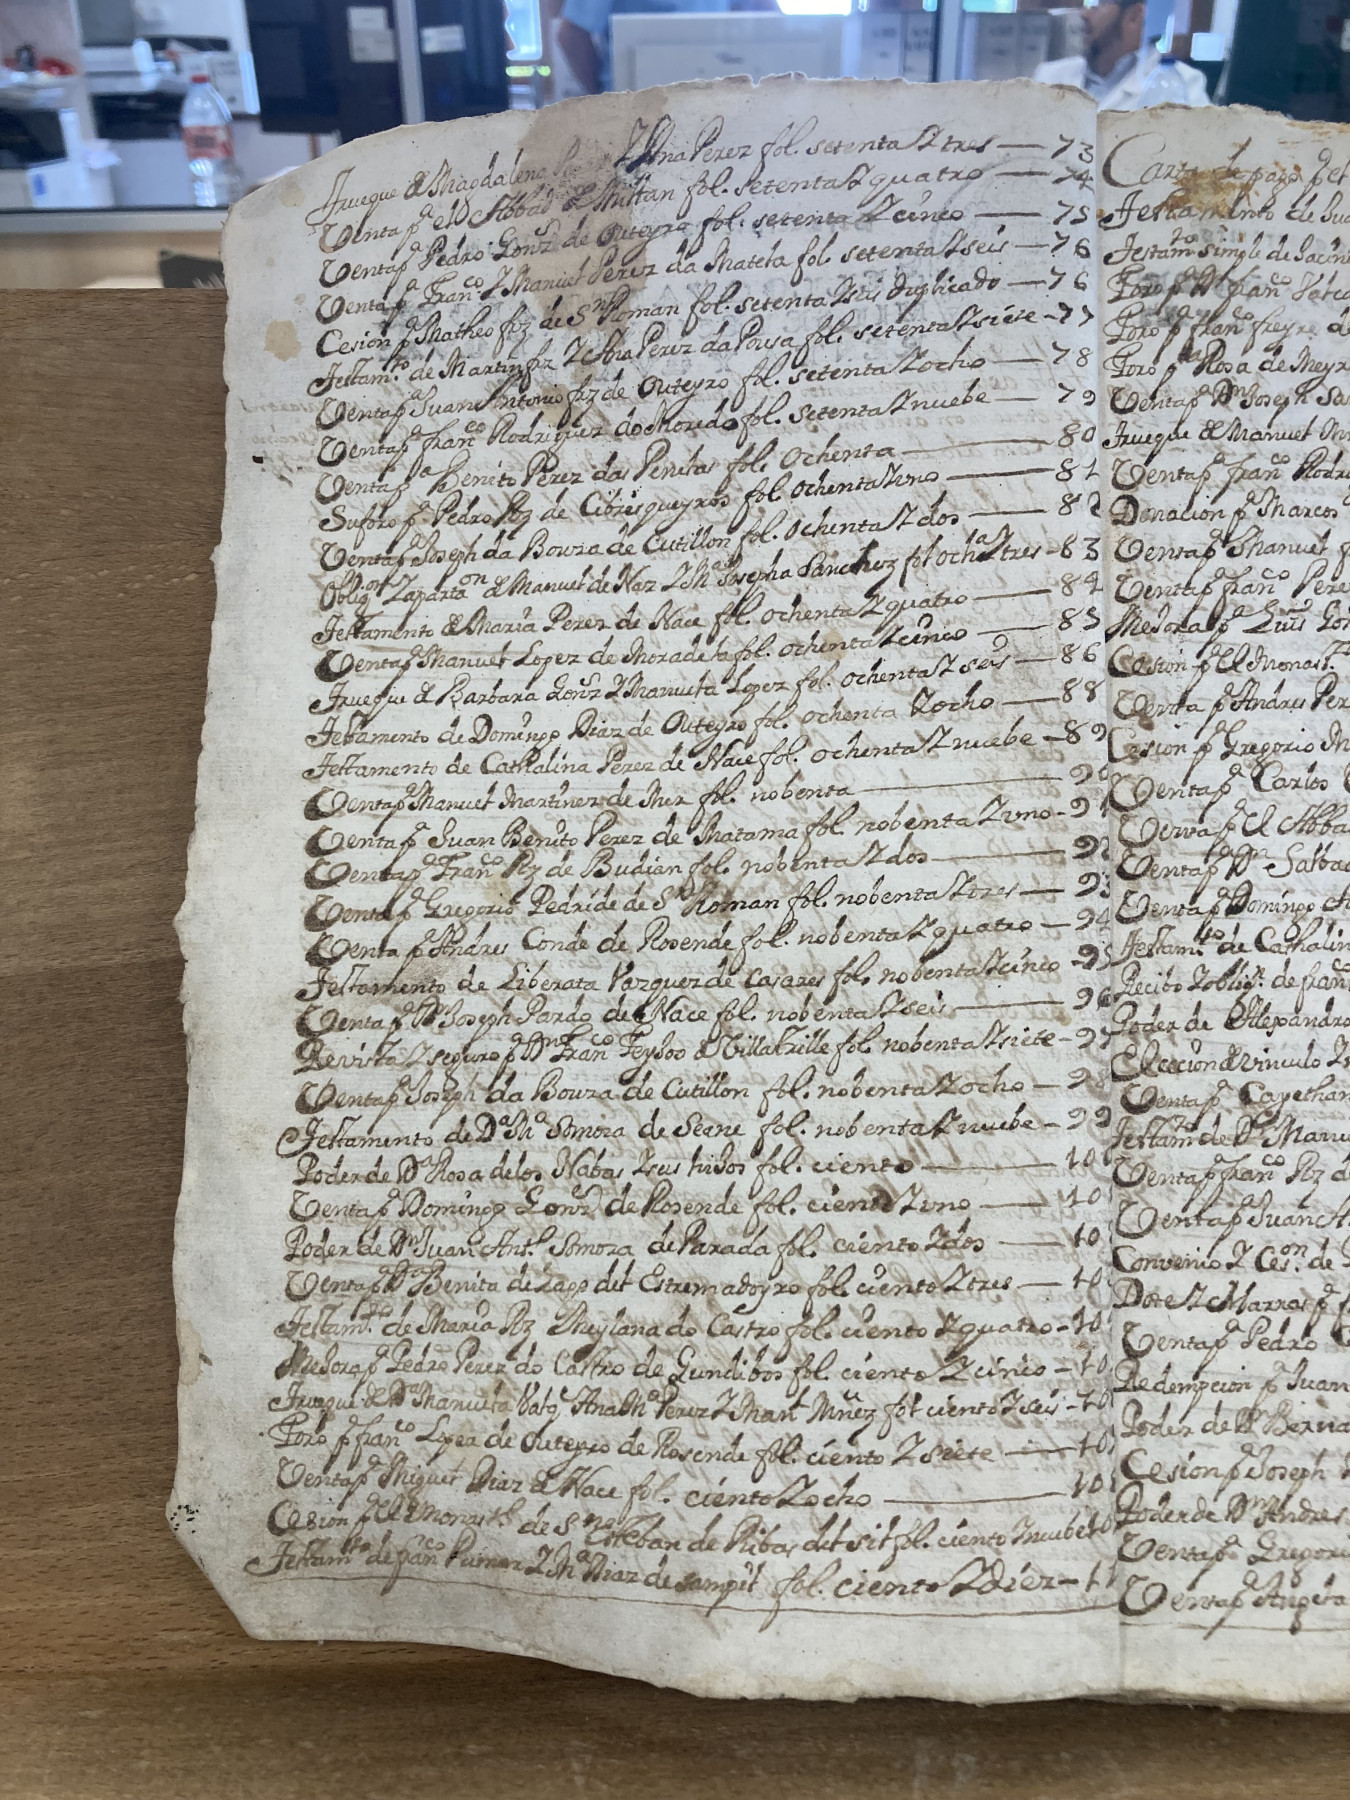 Trueque de Magdalena Pe Y Ana Perez fol. setenta Y tres — 73
Venta pª el Abbad de Millan fol. setenta Y quatro — 74
Venta pª Pedro Gonz de Outeyro fol. setenta Y cinco — 75
Venta pª Franco Y Manuel Perez da Matela fol setenta Y seis — 76
Cesion pª Matheo frz de Sn Roman fol. setenta Y seis duplicado — 76
Testamto de Martin frz Y Ana Perez da Pousa fol. setenta Y siete — 77
Venta pª Juan Antonio frz de Outeyro fol. setenta Y ocho — 78
Venta pª franco Rodriguez do Moredo fol. setenta Y nuebe — 79
Venta pª Benito Perez das Penelas fol. ochenta — 80
Suforo pª Pedro Rz de Cibresqueyros fol. ochenta Y uno — 81
Venta pª Joseph da Bouza de Cutillon fol. ochenta Y dos — 82
Obligon Y aparton de Manuel de Naz Y Mª Josepha Sanchez fol ochtª Y tres — 83
Testamento de Maria Perez de Nace fol. ochenta Y quatro — 84
Venta pª Manuel Lopez de Moradela fol. ochenta Y cinco — 85
Trueque de Barbara Gonz Y Manuela Lopez fol. ochenta Y seis — 86
Testamento de Domingo Diaz de Outeyro fol. ochenta Y ocho — 88
Testamento de Cathalina Perez de Nace fol. ochenta Y nuebe — 89
Venta pª Manuel Martinez de Mer fol. nobenta — 90
Venta pª Juan Benito Perez de Matama fol. nobenta Y uno — 91
Venta pª Franco Rz de Budian fol. nobenta Y dos — 92
Venta pª Gregorio Pedride de Sn Roman fol. nobenta Y tres — 93
Venta pª Andres Conde de Rosende fol. nobenta Y quatro — 94
Testamento de Liberata Vazquez de Casares fol. nobenta Y cinco — 95
Venta pª Dn Joseph Pardo de Nace fol. nobenta Y seis — 96
Revista Y seguro pª Dn Franco Feyjoo de Villatrille fol. nobenta Y siete — 97
Venta pª Joseph da Bouza de Cutillon fol. nobenta Y ocho — 98
Testamento de Dª Mª Somoza de Seane fol. nobenta Y nuebe — 99
Poder de Dª Rosa de los Nabas Y sus hijos fol. ciento — 10
Venta pª Domingo Gonz de Rosende fol. ciento Y uno — 10
Poder de Dn Juan Antº Somoza de Parada fol. ciento Y dos — 10
Venta pª Dª Benita de Lago del Estremadoyro fol. ciento Y tres — 10
Testamto de Maria Rz Meylana do Castro fol. ciento Y quatro — 10
Mejora pª Pedro Perez do Castro de Gundibos fol. ciento Y cinco — 10
Trueque de Dª Manuela Ana Mª Perez Y Manl Nuñez fol ciento Y seis — 10
Foro pª franco Lopez de Outeyro de Rosende fol. ciento Y siete — 10
Venta pª Miguel Diaz de Nace fol. ciento Y ocho — 10
Cesion pª el Monastº de Sn Esteban de Ribas del Sil fol. ciento Y nuebe 10
Testamto de franco Y Mª Diaz de Sampil fol. ciento Y diez — 1
Carta de pago
Testamento de Jua
Testamto simple de Jacin
Foro pª Dn franco
Foro pª franco freyre d
Foro pª Rosa de Meyr
Venta pª Dn Joseph Sa
Trueque de Manuel
Venta pª franco Rodri
Donacion pª Marcos
Venta pª Manuel f
Venta pª franco Pere
Mejora pª Luis Go
Cesion pª el Monastº
Venta pª Andres Per
Cesion pª Gregorio M
Venta pª Carlos
Venta pª el Abba
Venta pª Dn Salba
Venta pª Domingo A
Testamto de Cathalin
Recibo Y obligon de fran
Poder de Alexandro
Eleccion de vinculo Y
Venta pª Cayethan
Testamto de Dn Manu
Venta pª franco Rz d
Venta pª Juan A
Convenio Y Ceson de
Dote Y Marras pª f
Venta pª Pedro
Redempcion pª Juan
Poder de Dn Berna
Cesion pª Joseph
Poder de Dn Andres
Venta pª Gregori
Venta pª Angela